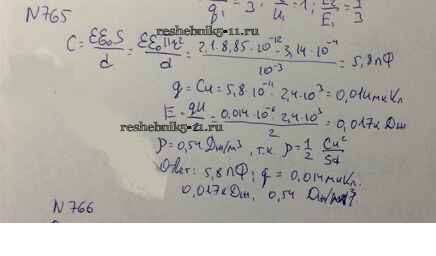 N765
q₁ = 3; U₁ = 1; E₁ = 3
reshebnik5-11.ru
C = εε₀S/d = εε₀πr²/d = 2,1·8,85·10⁻¹²·3,14·10⁻⁴/10⁻³ = 5,8пФ
q = Cu = 5,8·10⁻¹¹·2,4·10³ = 0,014мкКл
E = qU/2 = 0,014·10⁻⁶·2,4·10³/2 = 0,017кДж
reshebnik5-11.ru
p = 0,54Дж/м³, т.к. p = 1/2 Cu²/Sd
Ответ: 5,8пФ; q = 0,014мкКл.
0,017кДж, 0,54 Дж/м³
N766